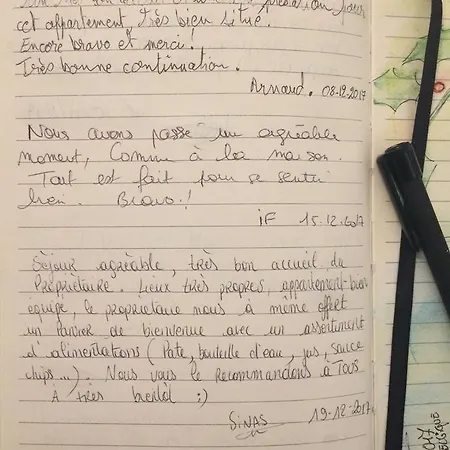 cet appartement, très bien situé.
Encore bravo et merci!
Très bonne continuation.
Arnaud. 08-12-2017
Nous avons passé un agréable
moment, Comme à la maison.
Tout est fait pour se sentir
bien. Bravo!
iF 15.12.2017
Séjour agréable, très bon accueil du
Propriétaire. Lieux très propres, appartement bien
équipe, le propriétaire nous à même offert
un panier de bienvenue avec un assortiment
d'alimentations (Pate, bouteille d'eau, jus, sauce
chips...). Nous vous le recommandons à Tous
A très bientôt ;)
SiNAS 19-12-2017